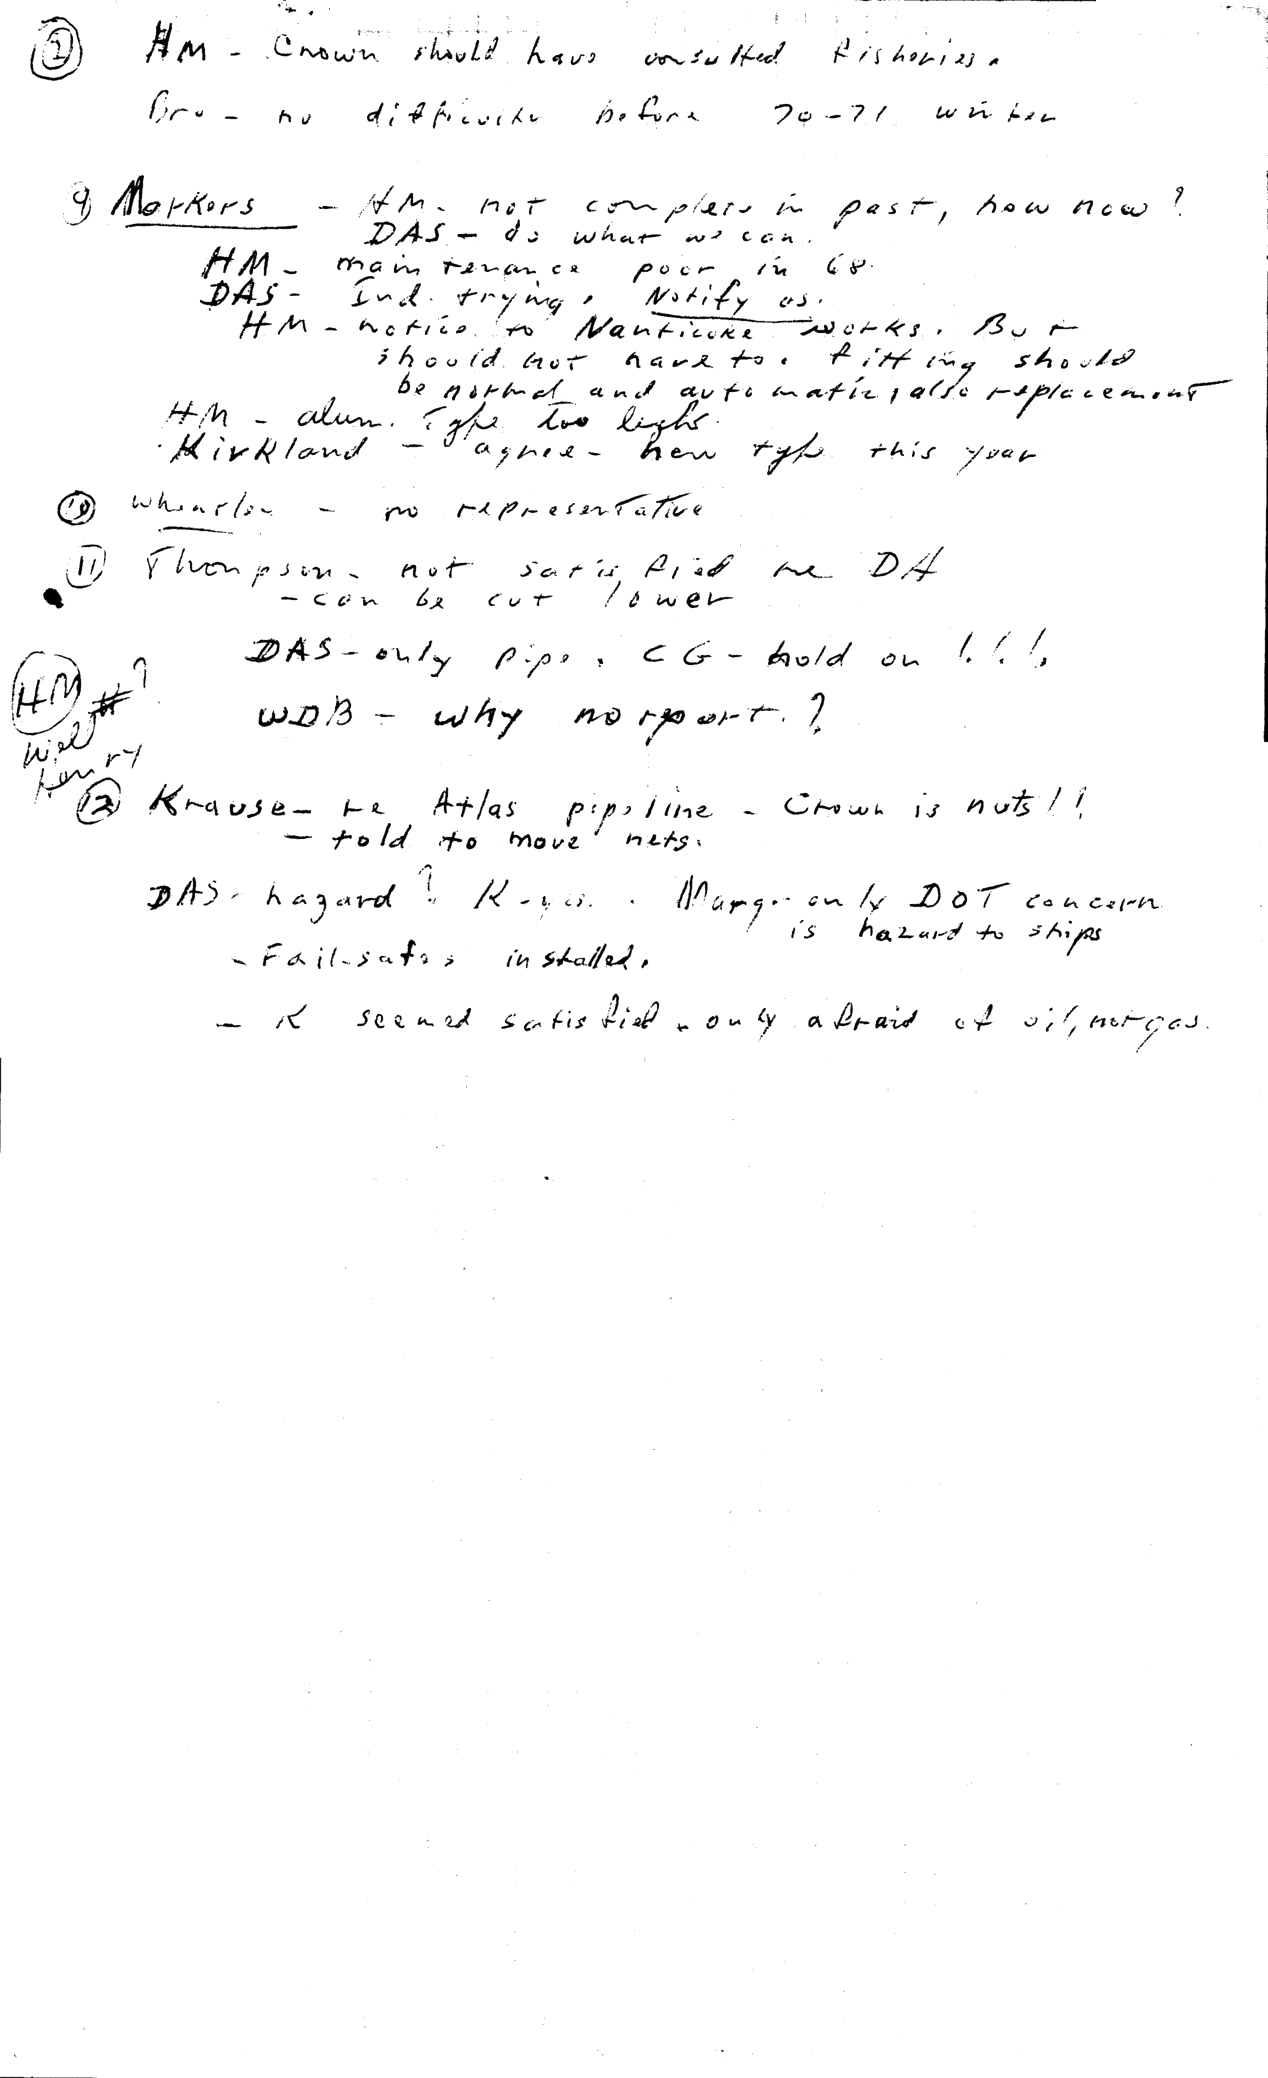 ② HM - Crown should have consulted fisheries.
Bru - no difficulty before 70-71 winter
9) Markers - HM - not complete in past, how now?
DAS - do what we can.
HM - maintenance poor in 68.
DAS - Ind. trying. Notify us.
HM - notice to Nanticoke works. But
should not have to. fitting should
be normal and automatic, also replacement
HM - alum. type too light.
Kirkland - agree - new type this year
⑩ Wheatley - no representative
⑪ Thompson - not satisfied re DH
- can be cut lower
DAS - only pipe. CG - hold on !!!
HM #?
WDB - why no report?
Well
Henry
⑫ Krause - re Atlas pipeline - Crown is nuts!!
- told to move nets.
DAS - hazard? K - yes. Marg - only DOT concern
is hazard to ships
- Fail-safes installed.
- K seemed satisfied - only afraid of oil, not gas.